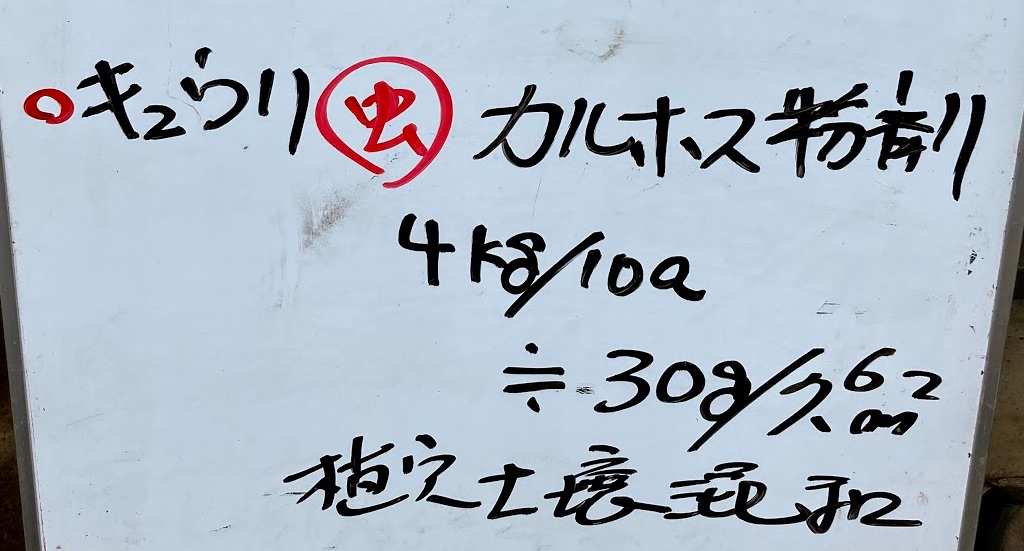 ○キュウリ ㊥虫 カルホス粉剤
4kg/10a
≒30g/7.6m²
植穴土壌混和